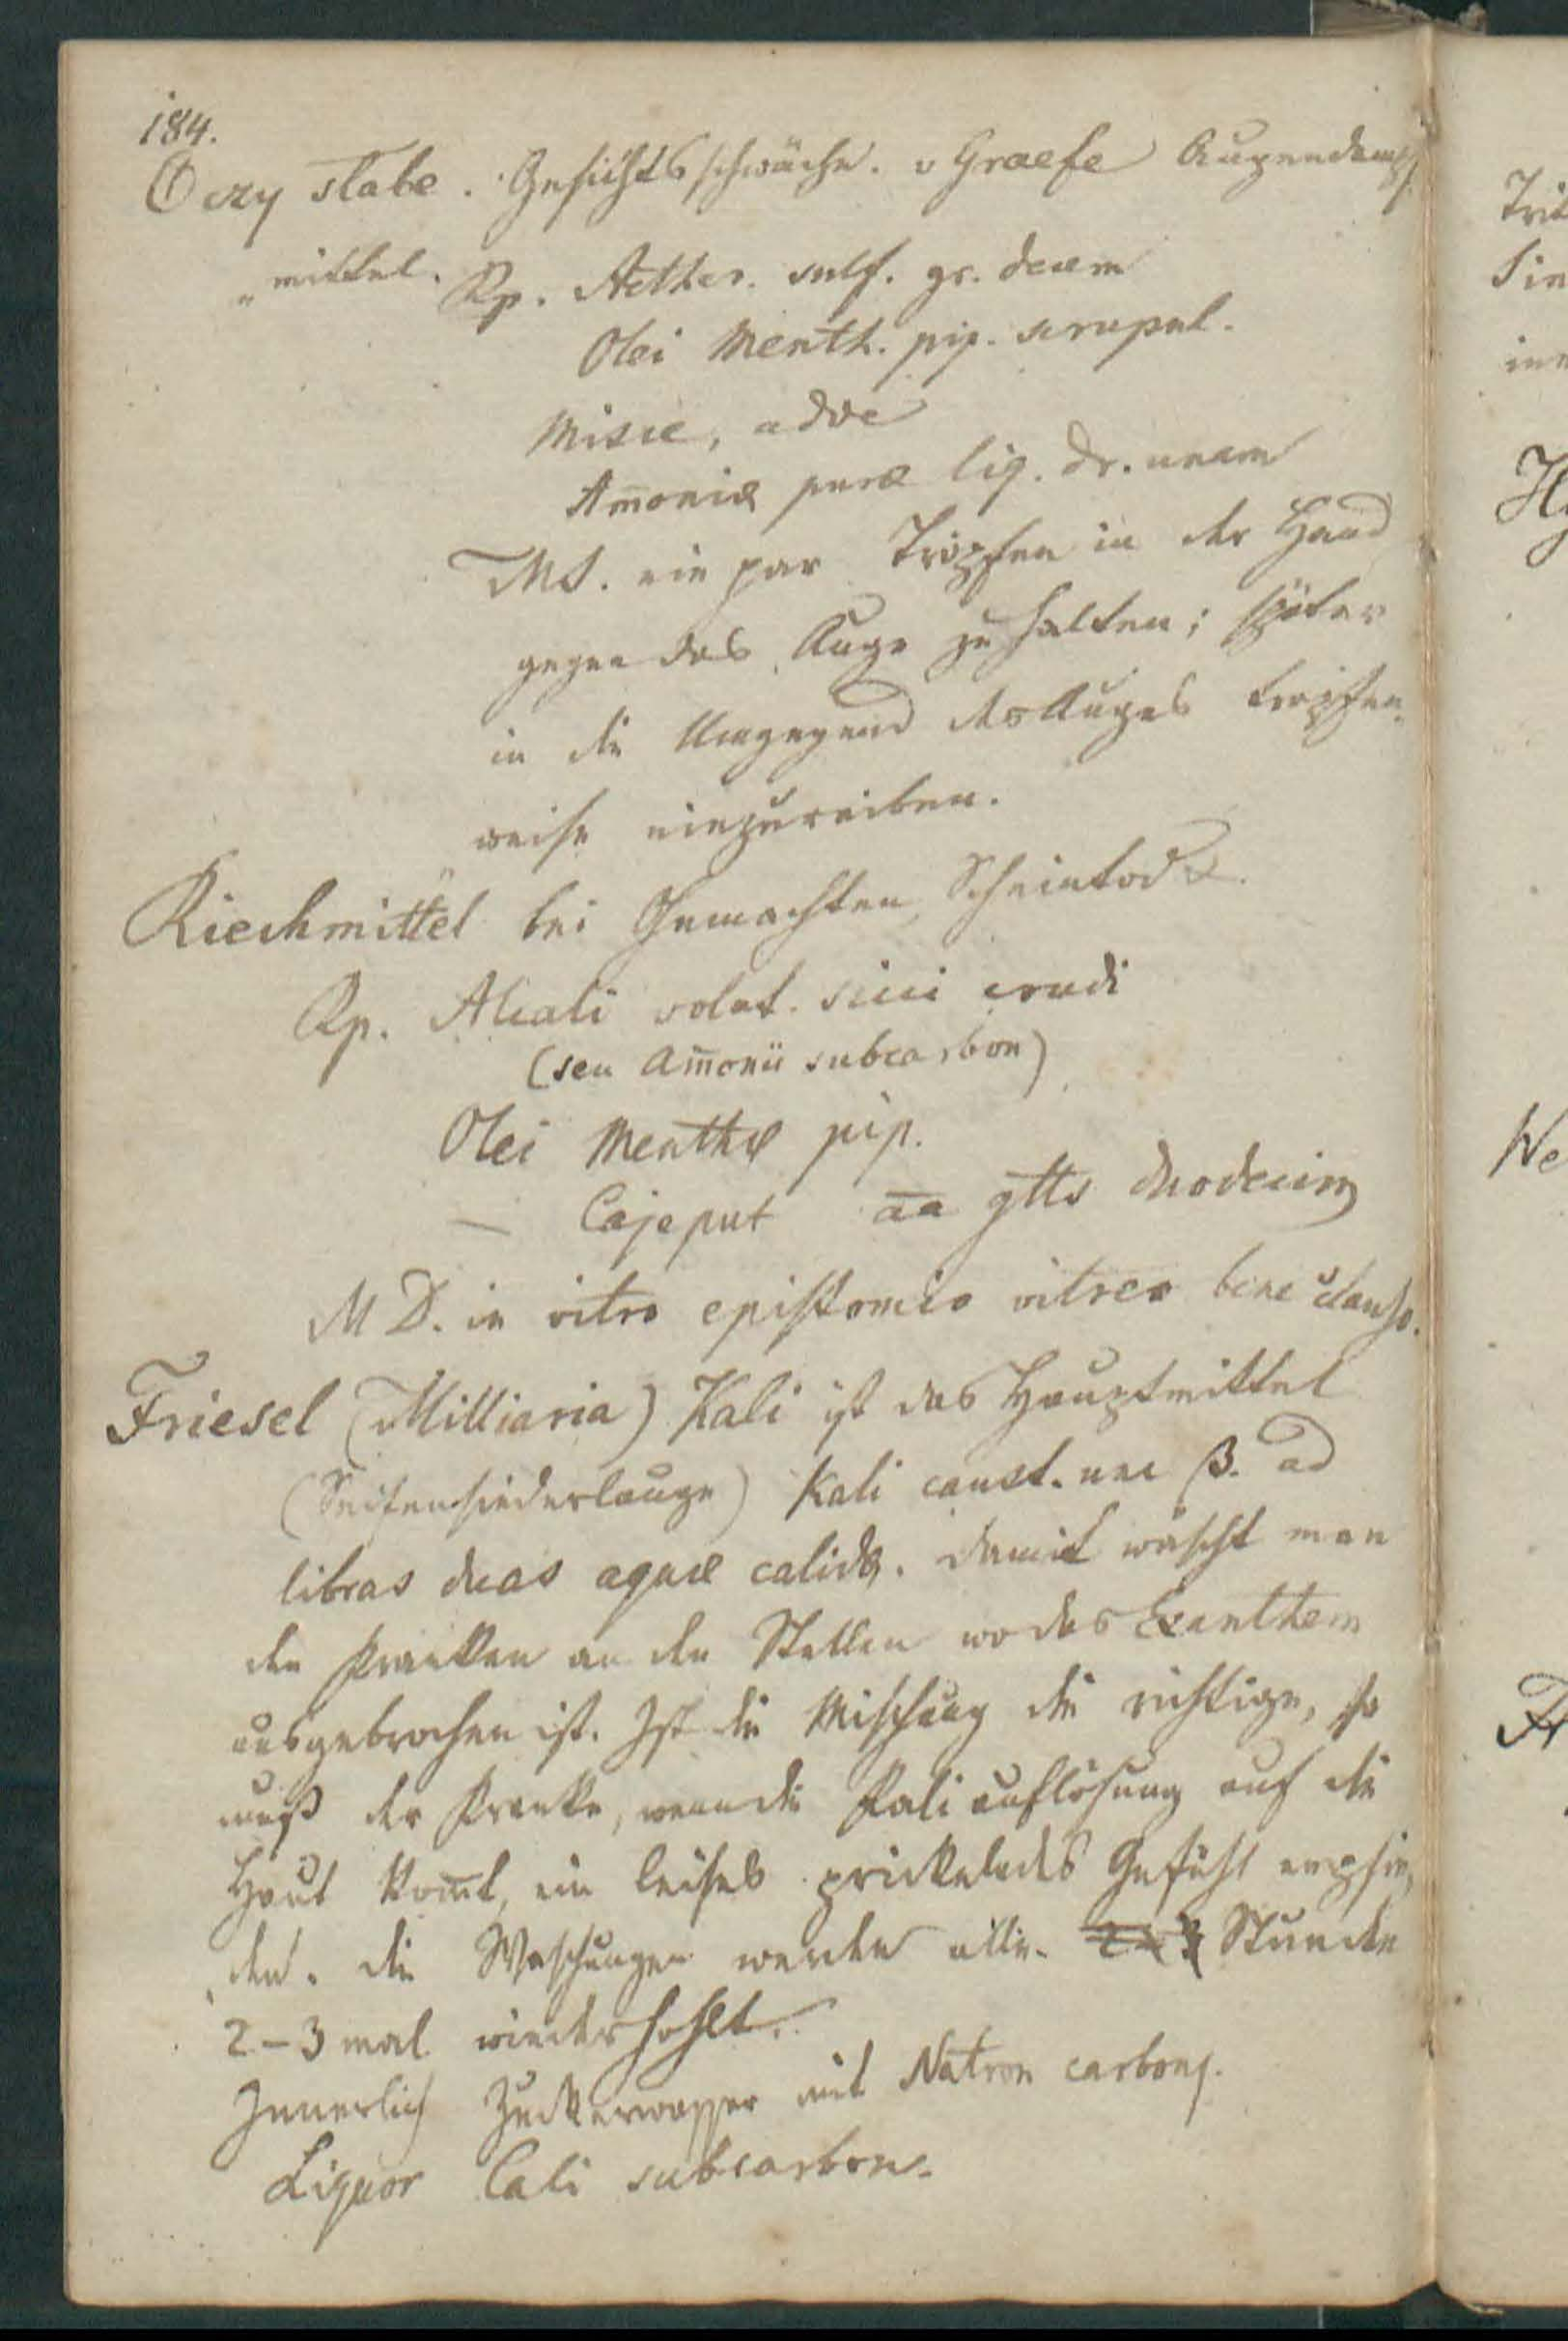 184.
Oczy słabe. Gesichtsschwäche. v Graefe Augendampf
„mittel. Rp. Aether. sulf. gr. decem
Olei Menth. pip. scrupul.
Misce, adde
Amoniæ puræ liq. dr. unam
MS. ein par Tropfen in der Hand
gegen das Auge zu halten; später
in die Umgegend des Auges tropfen
weise einzureiben.
Riechmittel bei Ohnmachten, Scheintod
Rp. Alcali volat. sicci crudi
(seu Amonii subcarbon)
Olei Menthæ pip.
— Cajeput aa gtts duodecim
M D. in vitro epistomio vitreo bene clauso.
Friesel (Milliaria) Kali ist das Hauptmittel
(Seifensiederlauge) Kali caust. unc ß. ad
libras duas aquæ calidæ. damit wäscht man
den Kranken an den Stellen wo das Exanthem
ausgebrochen ist. Ist die Mischung die richtige, so
muß der Kranke, wenn die Kaliauflösung auf die
Haut komt, ein leises prickelndes Gefühl empfin„
„den. die Waschungen werden alle Stunden
2-3 mal wiederhohlt.
Innerlich Zuckerwasser mit Natron carbon.
Liquor Cali subcarbon.
Tri
Sie
in
H
We
Fr